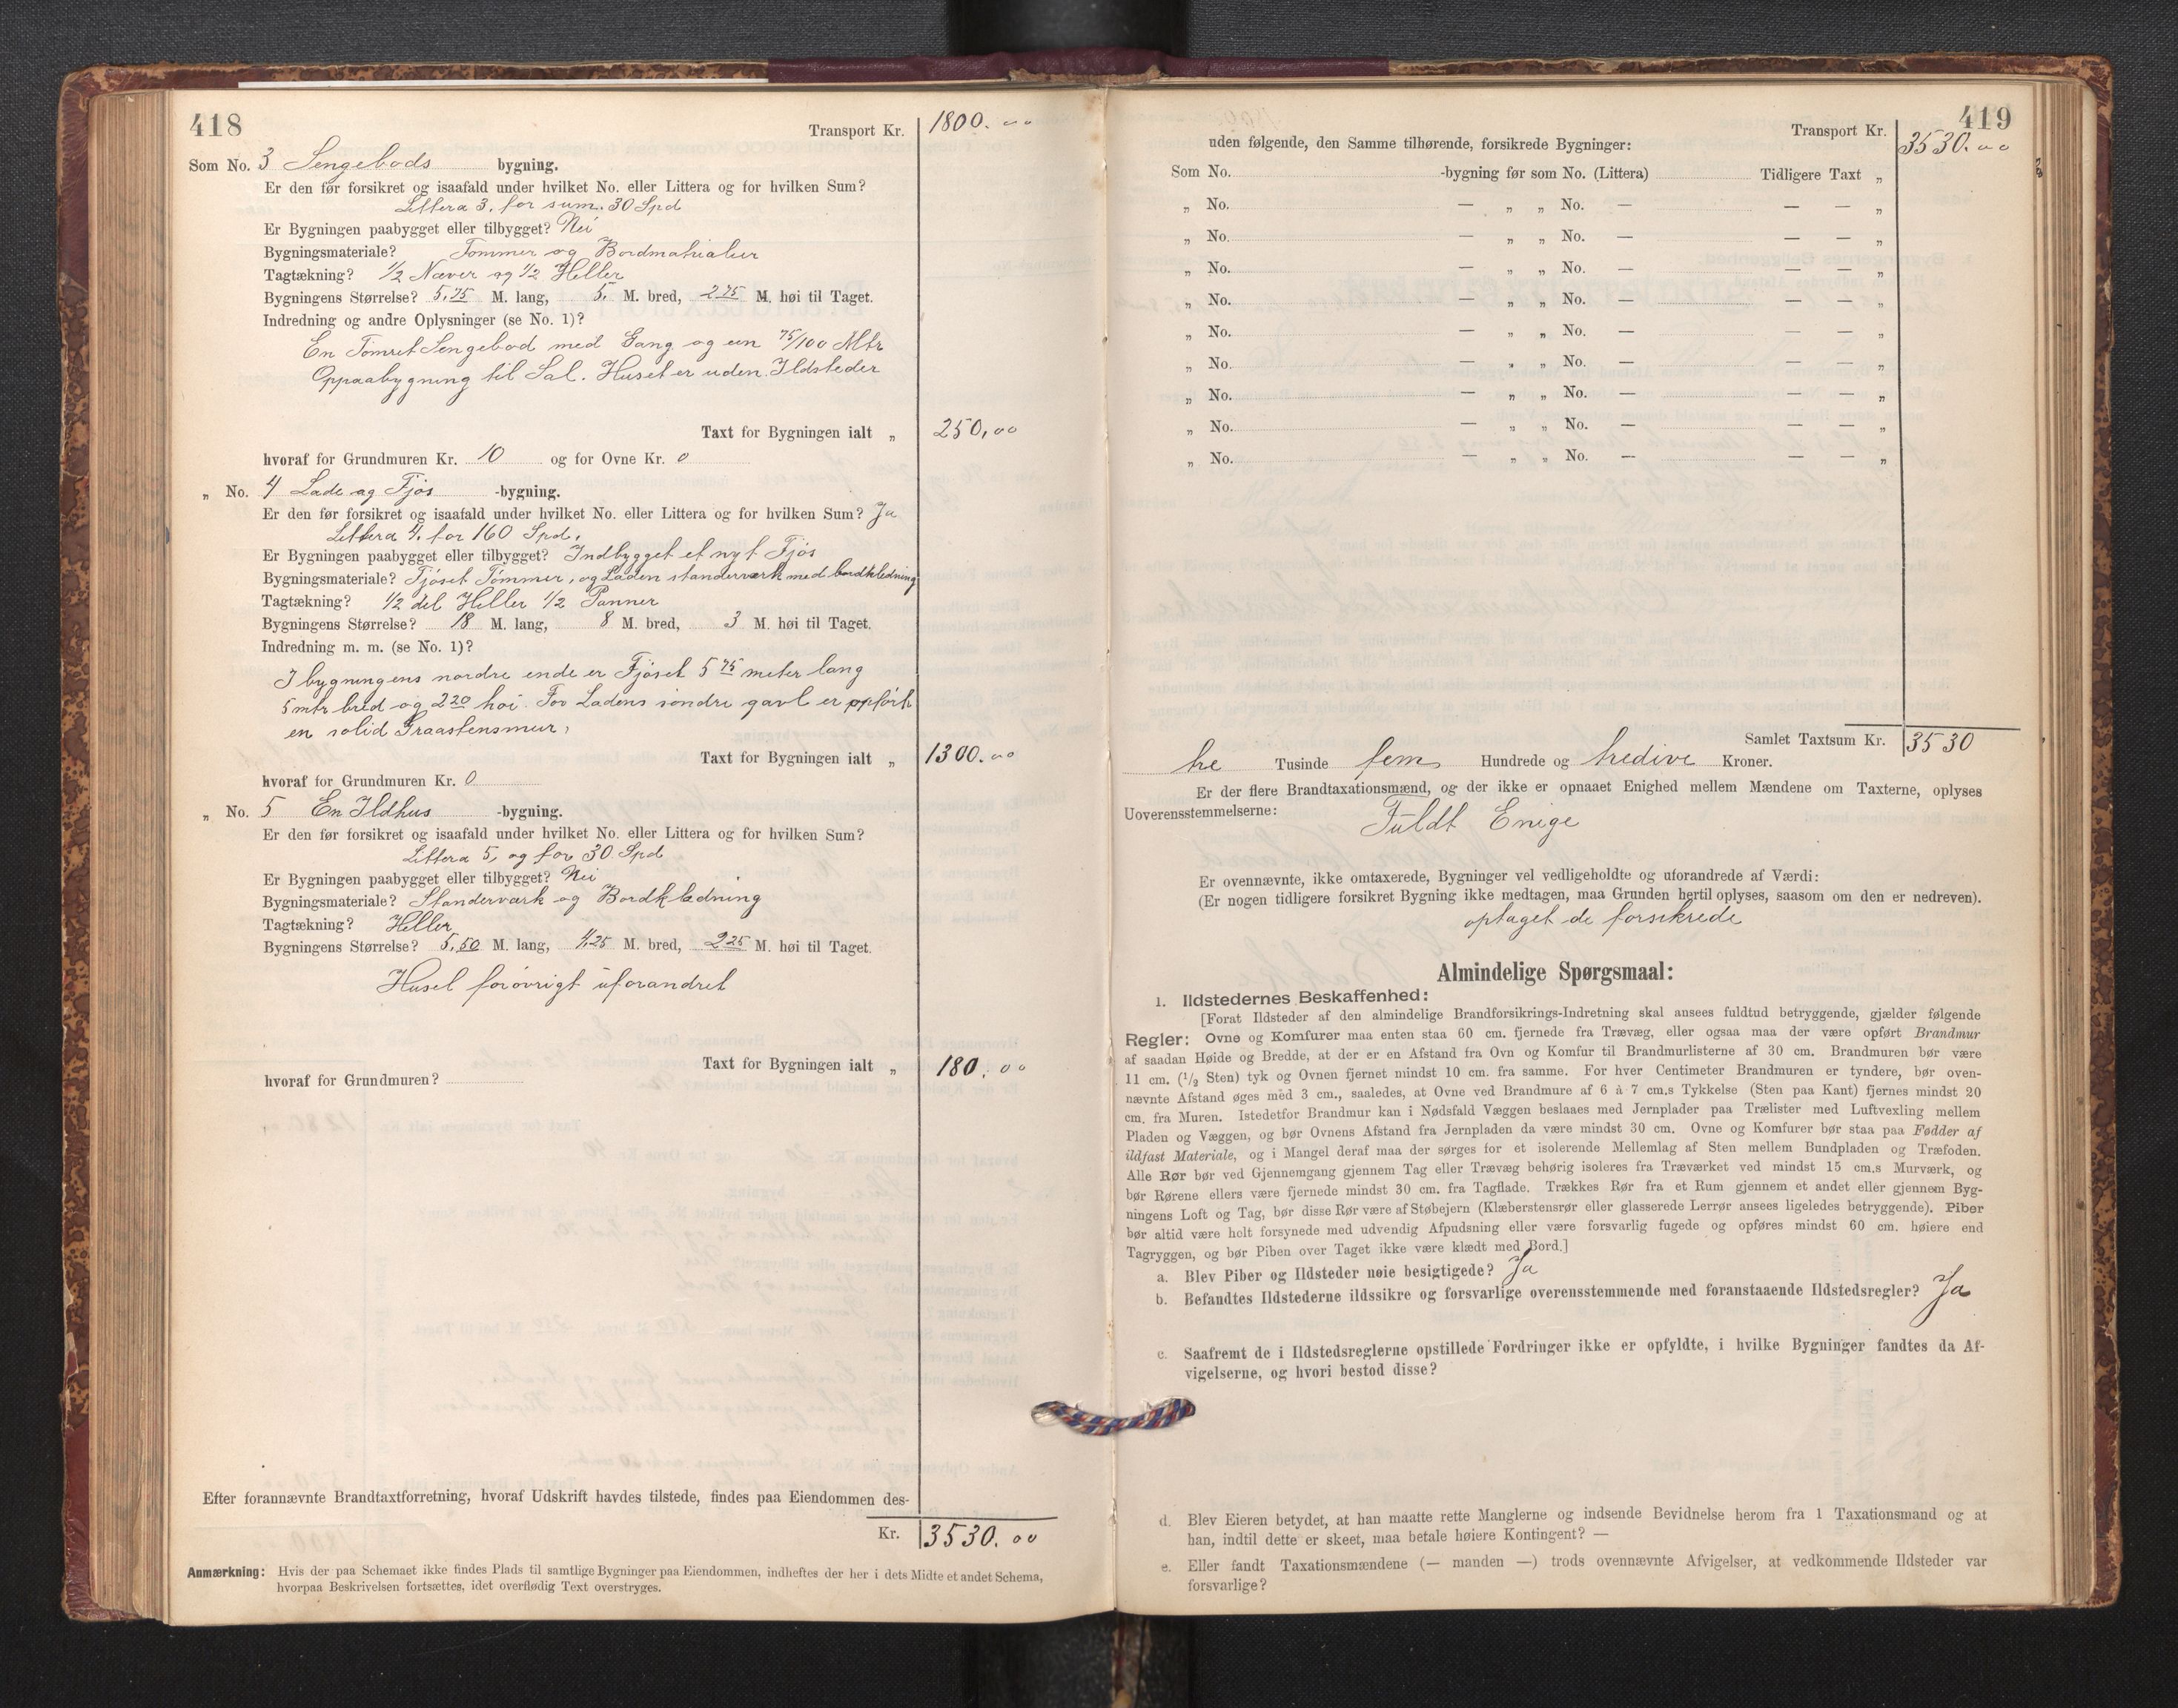 418
Transport Kr. 1800.00
Som No. 3 Sengebods bygning.
Er den før forsikret og isaafald under hvilket No. eller Littera og for hvilken Sum?
Littera 3. for sum. 30 Spd
Er Bygningen paabygget eller tilbygget? Nei
Bygningsmateriale? Tømmer og Bordmatrialier
Tagtækning? 1/2 Næver og 1/2 Heller
Bygningens Størrelse? 5,75 M. lang, 5, M. bred, 2 75 M. høi til Taget.
Indredning og andre Oplysninger (se No. 1)?
En Tømret Sengebod med Gang og een 75/100 Mtr
Oppaabygning til Sal. Huset er uden Ildsteder
Taxt for Bygningen ialt „ 250,00
hvoraf for Grundmuren Kr. 10 og for Ovne Kr. 0
„ No. 4 Lade og Fjøs -bygning.
Er den før forsikret og isaafald under hvilket No. eller Littera og for hvilken Sum? Ja
Littera 4. for 160 Spd,
Er Bygningen paabygget eller tilbygget? Indbygget et nyt Fjøs
Bygningsmateriale? Fjøset Tømmer, og Laden standerværk med bordkledning
Tagtækning? 1/2 del Heller 1/2 Panner
Bygningens Størrelse? 18 M. lang, 8 M. bred, 3 M. høi til Taget.
Indredning m. m. (se No. 1)?
I bygningens nordre ende er Fjøset 5 75 meter lang
5 mtr bred og 2 20 høi. For Ladens søndre gavl er opført
en solid Graastensmur,
Taxt for Bygningen ialt „ 1300.00
hvoraf for Grundmuren Kr. 0
„ No. 5 En Ildhus -bygning.
Er den før forsikret og isaafald under hvilket No. eller Littera og for hvilken Sum?
Littera 5, og for 30 Spd
Er Bygningen paabygget eller tilbygget? Nei
Bygningsmateriale? Standerværk og Bordklædning
Tagtækning? Heller
Bygningens Størrelse? 5,50 M. lang, 4,25 M. bred, 2 25 M. høi til Taget.
Huset forøvrigt uforandret
Taxt for Bygningen ialt „ 180.00
hvoraf for Grundmuren?
Efter forannævnte Brandtaxtforretning, hvoraf Udskrift havdes tilstede, findes paa Eiendommen des-
Kr. 3530.00
Anmærkning: Hvis der paa Schemaet ikke findes Plads til samtlige Bygninger paa Eiendommen, indheftes der her i dets Midte et andet Schema,
hvorpaa Beskrivelsen fortsættes, idet overflødig Text overstryges.
419
Transport Kr. 3530.00
uden følgende, den Samme tilhørende, forsikrede Bygninger:
Som No. -bygning før som No. (Littera) Tidligere Taxt „
„ No. — „ „ No. — — — „
„ No. — „ „ No. — — — „
„ No. — „ „ No. — — — „
„ No. — „ „ No. — — — „
„ No. — „ „ No. — — — „
„ No. — „ „ No. — — — „
„ No. — „ „ No. — — — „
„ No. — „ „ No. — — — „
„ No. — „ „ No. — — — „
Samlet Taxtsum Kr. 3530
tre Tusinde fem Hundrede og tredive Kroner.
Er der flere Brandtaxationsmænd, og der ikke er opnaaet Enighed mellem Mændene om Taxterne, oplyses
Uoverensstemmelserne:
Fuldt Enige
Er ovennævnte, ikke omtaxerede, Bygninger vel vedligeholdte og uforandrede af Værdi:
(Er nogen tidligere forsikret Bygning ikke medtagen, maa Grunden hertil oplyses, saasom om den er nedreven).
optaget de forsikrede
Almindelige Spørgsmaal:
1. Ildstedernes Beskaffenhed:
[Forat Ildsteder af den almindelige Brandforsikrings-Indretning skal ansees fuldtud betryggende, gjælder følgende
Regler: Ovne og Komfurer maa enten staa 60 cm. fjernede fra Trævæg, eller ogsaa maa der være opført Brandmur
af saadan Høide og Bredde, at der er en Afstand fra Ovn og Komfur til Brandmurlisterne af 30 cm. Brandmuren bør være
11 cm. (1/2 Sten) tyk og Ovnen fjernet mindst 10 cm. fra samme. For hver Centimeter Brandmuren er tyndere, bør oven-
nævnte Afstand øges med 3 cm., saaledes, at Ovne ved Brandmure af 6 à 7 cm.s Tykkelse (Sten paa Kant) fjernes mindst 20
cm. fra Muren. Istedetfor Brandmur kan i Nødsfald Væggen beslaaes med Jernplader paa Trælister med Luftvexling mellem
Pladen og Væggen, og bør Ovnens Afstand fra Jernpladen da være mindst 30 cm. Ovne og Komfurer bør staa paa Fødder af
ildfast Materiale, og i Mangel deraf maa der sørges for et isolerende Mellemlag af Sten mellem Bundpladen og Træfoden.
Alle Rør bør ved Gjennemgang gjennem Tag eller Trævæg behørig isoleres fra Træværket ved mindst 15 cm.s Murværk, og
bør Rørene ellers være fjernede mindst 30 cm. fra Tagflade. Trækkes Rør fra et Rum gjennem et andet eller gjennem Byg-
ningens Loft og Tag, bør disse Rør være af Støbejern (Klæberstensrør eller glasserede Lerrør ansees ligeledes betryggende). Piber
bør altid være helt forsynede med udvendig Afpudsning eller være forsvarlig fugede og opføres mindst 60 cm. høiere end
Tagryggen, og bør Piben over Taget ikke være klædt med Bord.]
a. Blev Piber og Ildsteder nøie besigtigede? Ja
b. Befandtes Ildstederne ildssikre og forsvarlige overensstemmende med foranstaaende Ildstedsregler? Ja
c. Saafremt de i Ildstedsreglerne opstillede Fordringer ikke er opfyldte, i hvilke Bygninger fandtes da Af-
vigelserne, og hvori bestod disse?
d. Blev Eieren betydet, at han maatte rette Manglerne og indsende Bevidnelse herom fra 1 Taxationsmand og at
han, indtil dette er skeet, maa betale høiere Kontingent? —
e. Eller fandt Taxationsmændene (— manden —) trods ovennævnte Afvigelser, at vedkommende Ildsteder var
forsvarlige?